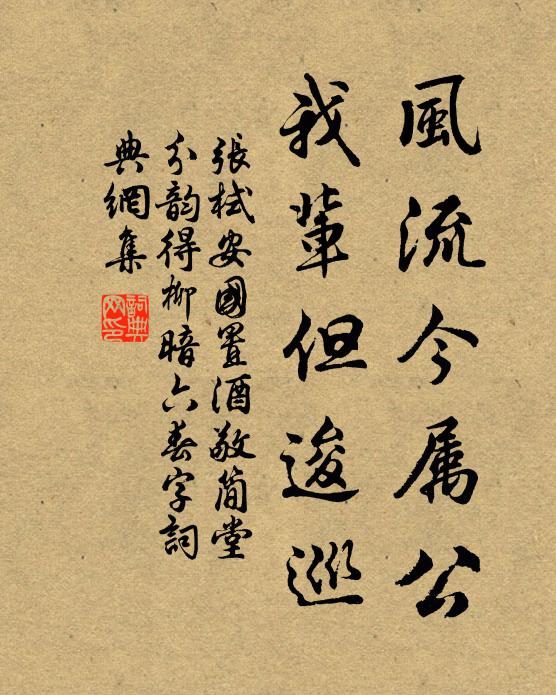 風流今属公
我輩但逡巡
張栻安國置酒敬簡堂
分韵得柳暗六春字詞
典網集
詞典
网印